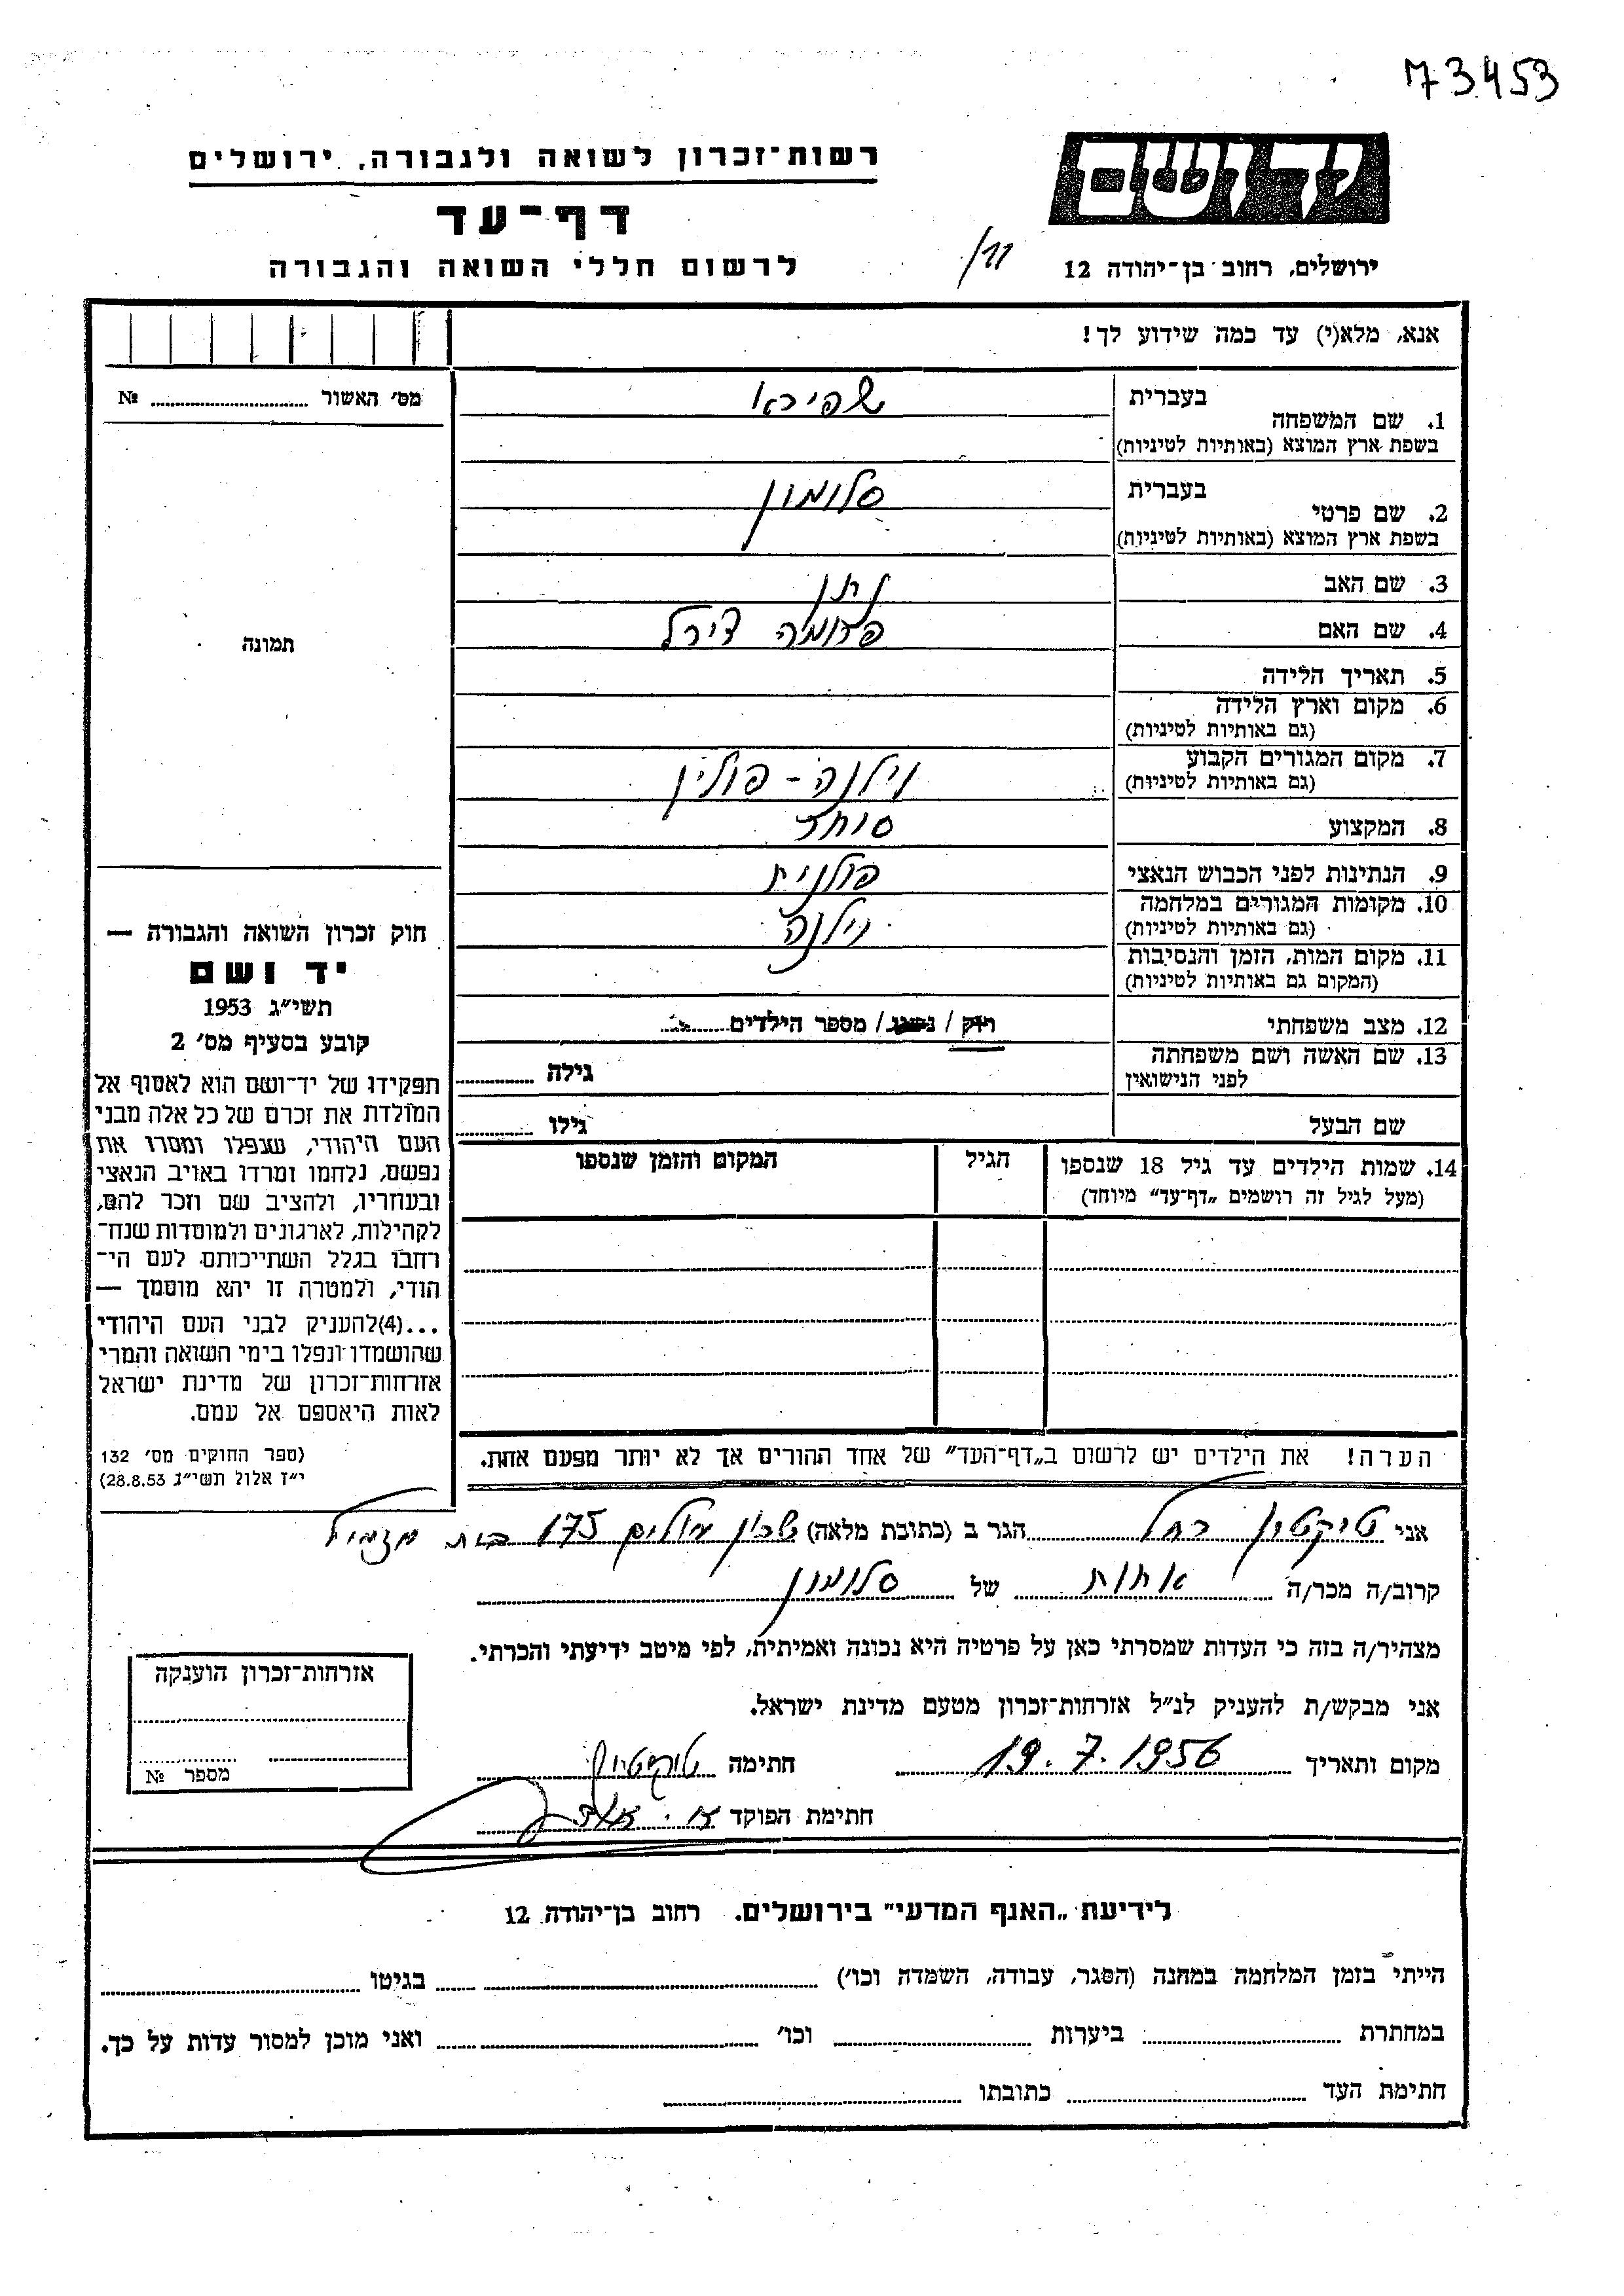 73453
ידושם
רשות־זכרון לשואה ולגבורה, ירושלים
דף־עד
לרשום חללי השואה והגבורה
ירושלים, רחוב בן־יהודה 12
אנא, מלא(י) עד כמה שידוע לך!
מס׳ האשור № ..........
בעברית שפירא
1. שם המשפחה
בשפת ארץ המוצא (באותיות לטיניות)
בעברית סלומון
2. שם פרטי
בשפת ארץ המוצא (באותיות לטיניות)
3. שם האב נתן
4. שם האם פרומה
תמונה
5. תאריך הלידה
6. מקום וארץ הלידה
(גם באותיות לטיניות)
7. מקום המגורים הקבוע וילנה - פולין
(גם באותיות לטיניות)
8. המקצוע סוחר
9. הנתינות לפני הכבוש הנאצי פולנית
10. מקומות המגורים במלחמה וילנה
(גם באותיות לטיניות)
11. מקום המות, הזמן והנסיבות
(המקום גם באותיות לטיניות)
12. מצב משפחתי רוק / נשוי / מספר הילדים
13. שם האשה ושם משפחתה גילה
לפני הנישואין
שם הבעל גילו
14. שמות הילדים עד גיל 18 שנספו הגיל המקום והזמן שנספו
(מעל לגיל זה רושמים „דף־עד״ מיוחד)
חוק זכרון השואה והגבורה —
יד ושם
תשי״ג 1953
קובע בסעיף מס׳ 2
תפקידו של יד־ושם הוא לאסוף אל
המולדת את זכרם של כל אלה מבני
העם היהודי, שנפלו ומסרו את
נפשם, נלחמו ומרדו באויב הנאצי
ובעוזריו, ולהציב שם וזכר להם,
לקהילות, לארגונים ולמוסדות שנח־
רבו בגלל השתייכותם לעם הי־
הודי, ולמטרה זו יהא מוסמך —
...(4)להעניק לבני העם היהודי
שהושמדו ונפלו בימי השואה והמרי
אזרחות־זכרון של מדינת ישראל
לאות היאספם אל עמם.
(ספר החוקים מס׳ 132
י״ז אלול תשי״ג 28.8.53)
הערה! את הילדים יש לרשום ב„דף־העד״ של אחד ההורים אך לא יותר מפעם אחת.
אני טיקטין רחל הגר ב (כתובת מלאה) שכון עולים 175 בית מזמיל
קרוב/ה מכר/ה אחות של סלומון
מצהיר/ה בזה כי העדות שמסרתי כאן על פרטיה היא נכונה ואמיתית, לפי מיטב ידיעתי והכרתי.
אני מבקש/ת להעניק לנ״ל אזרחות־זכרון מטעם מדינת ישראל.
מקום ותאריך 19.7.1956 חתימה טיקטין
חתימת הפוקד
אזרחות־זכרון הוענקה
מספר №
לידיעת „האגף המדעי״ בירושלים. רחוב בן־יהודה 12
הייתי בזמן המלחמה במחנה (הסגר, עבודה, השמדה וכו׳) בגיטו
במחתרת ביערות וכו׳ ואני מוכן למסור עדות על כך.
חתימת העד כתובתו